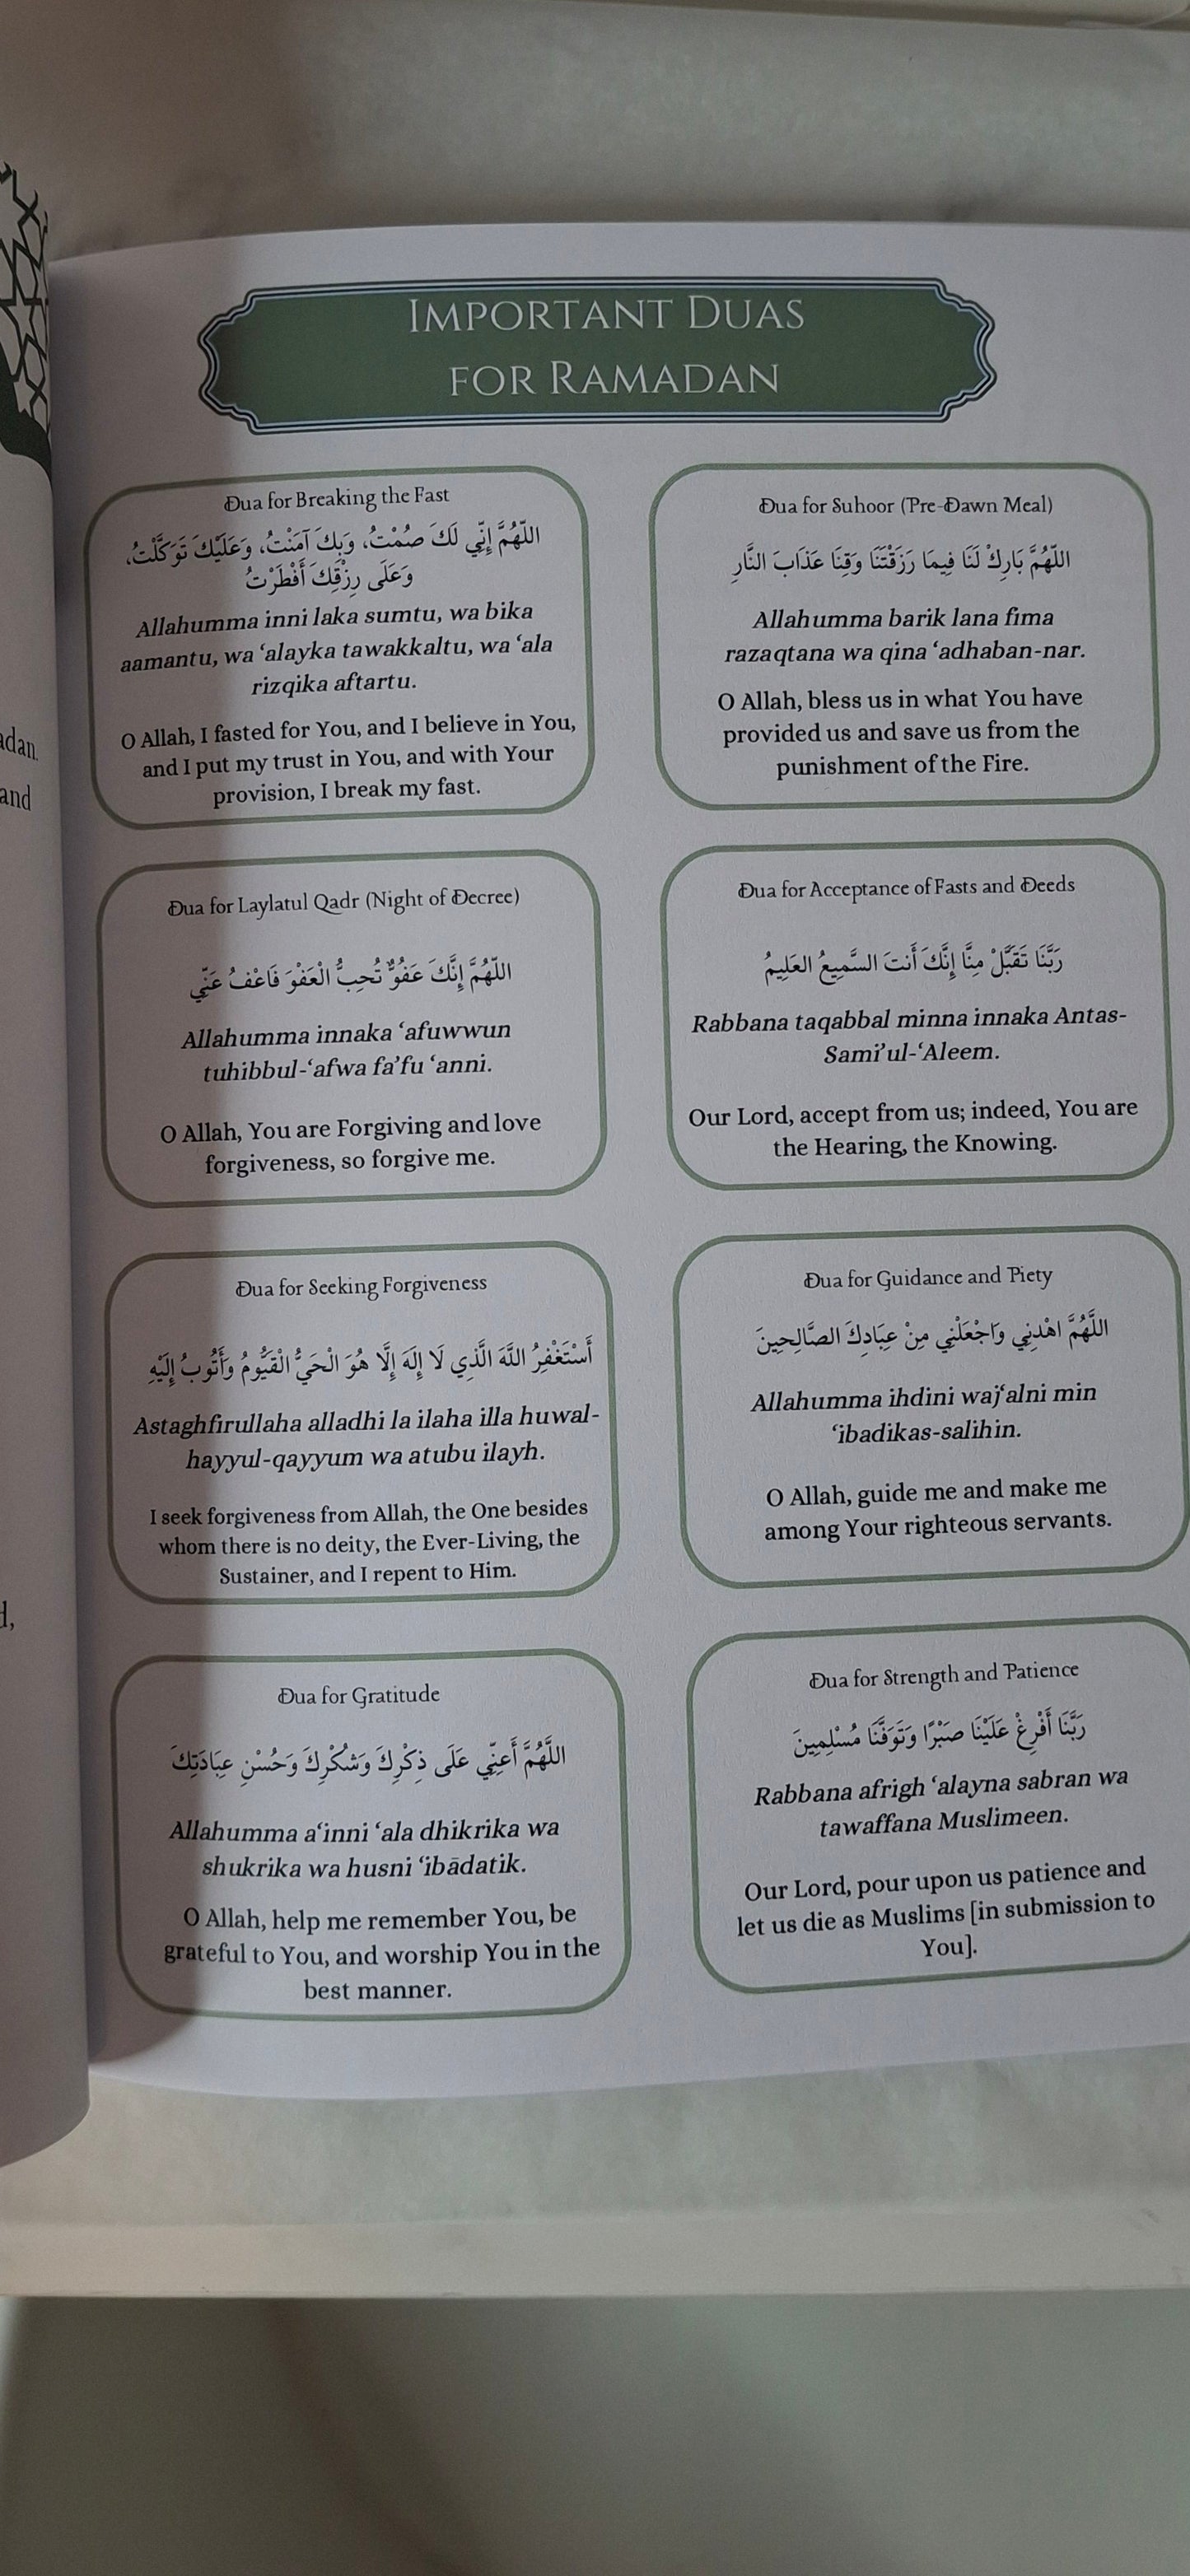 adan.
and
d,
IMPORTANT DUAS
FOR RAMADAN
Dua for Breaking the Fast
اللّهُمَّ إِنِّي لَكَ صُمْتُ، وَبِكَ آمَنْتُ، وَعَلَيْكَ تَوَكَّلْتُ،
وَعَلَى رِزْقِكَ أَفْطَرْتُ
Allahumma inni laka sumtu, wa bika
aamantu, wa ‘alayka tawakkaltu, wa ‘ala
rizqika aftartu.
O Allah, I fasted for You, and I believe in You,
and I put my trust in You, and with Your
provision, I break my fast.
Dua for Suhoor (Pre-Dawn Meal)
اللّهُمَّ بَارِكْ لَنَا فِيمَا رَزَقْتَنَا وَقِنَا عَذَابَ النَّارِ
Allahumma barik lana fima
razaqtana wa qina ‘adhaban-nar.
O Allah, bless us in what You have
provided us and save us from the
punishment of the Fire.
Dua for Laylatul Qadr (Night of Decree)
اللّهُمَّ إِنَّكَ عَفُوٌّ تُحِبُّ الْعَفْوَ فَاعْفُ عَنِّي
Allahumma innaka ‘afuwwun
tuhibbul-‘afwa fa’fu ‘anni.
O Allah, You are Forgiving and love
forgiveness, so forgive me.
Dua for Acceptance of Fasts and Deeds
رَبَّنَا تَقَبَّلْ مِنَّا إِنَّكَ أَنتَ السَّمِيعُ العَلِيمُ
Rabbana taqabbal minna innaka Antas-
Sami’ul-‘Aleem.
Our Lord, accept from us; indeed, You are
the Hearing, the Knowing.
Dua for Seeking Forgiveness
أَسْتَغْفِرُ اللَّهَ الَّذِي لَا إِلَهَ إِلَّا هُوَ الْحَيُّ الْقَيُّومُ وَأَتُوبُ إِلَيْهِ
Astaghfirullaha alladhi la ilaha illa huwal-
hayyul-qayyum wa atubu ilayh.
I seek forgiveness from Allah, the One besides
whom there is no deity, the Ever-Living, the
Sustainer, and I repent to Him.
Dua for Guidance and Piety
اللَّهُمَّ اهْدِنِي وَاجْعَلْنِي مِنْ عِبَادِكَ الصَّالِحِينَ
Allahumma ihdini waj‘alni min
‘ibadikas-salihin.
O Allah, guide me and make me
among Your righteous servants.
Dua for Gratitude
اللَّهُمَّ أَعِنِّي عَلَى ذِكْرِكَ وَشُكْرِكَ وَحُسْنِ عِبَادَتِكَ
Allahumma a‘inni ‘ala dhikrika wa
shukrika wa husni ‘ibādatik.
O Allah, help me remember You, be
grateful to You, and worship You in the
best manner.
Dua for Strength and Patience
رَبَّنَا أَفْرِغْ عَلَيْنَا صَبْرًا وَتَوَفَّنَا مُسْلِمِينَ
Rabbana afrigh ‘alayna sabran wa
tawaffana Muslimeen.
Our Lord, pour upon us patience and
let us die as Muslims [in submission to
You].